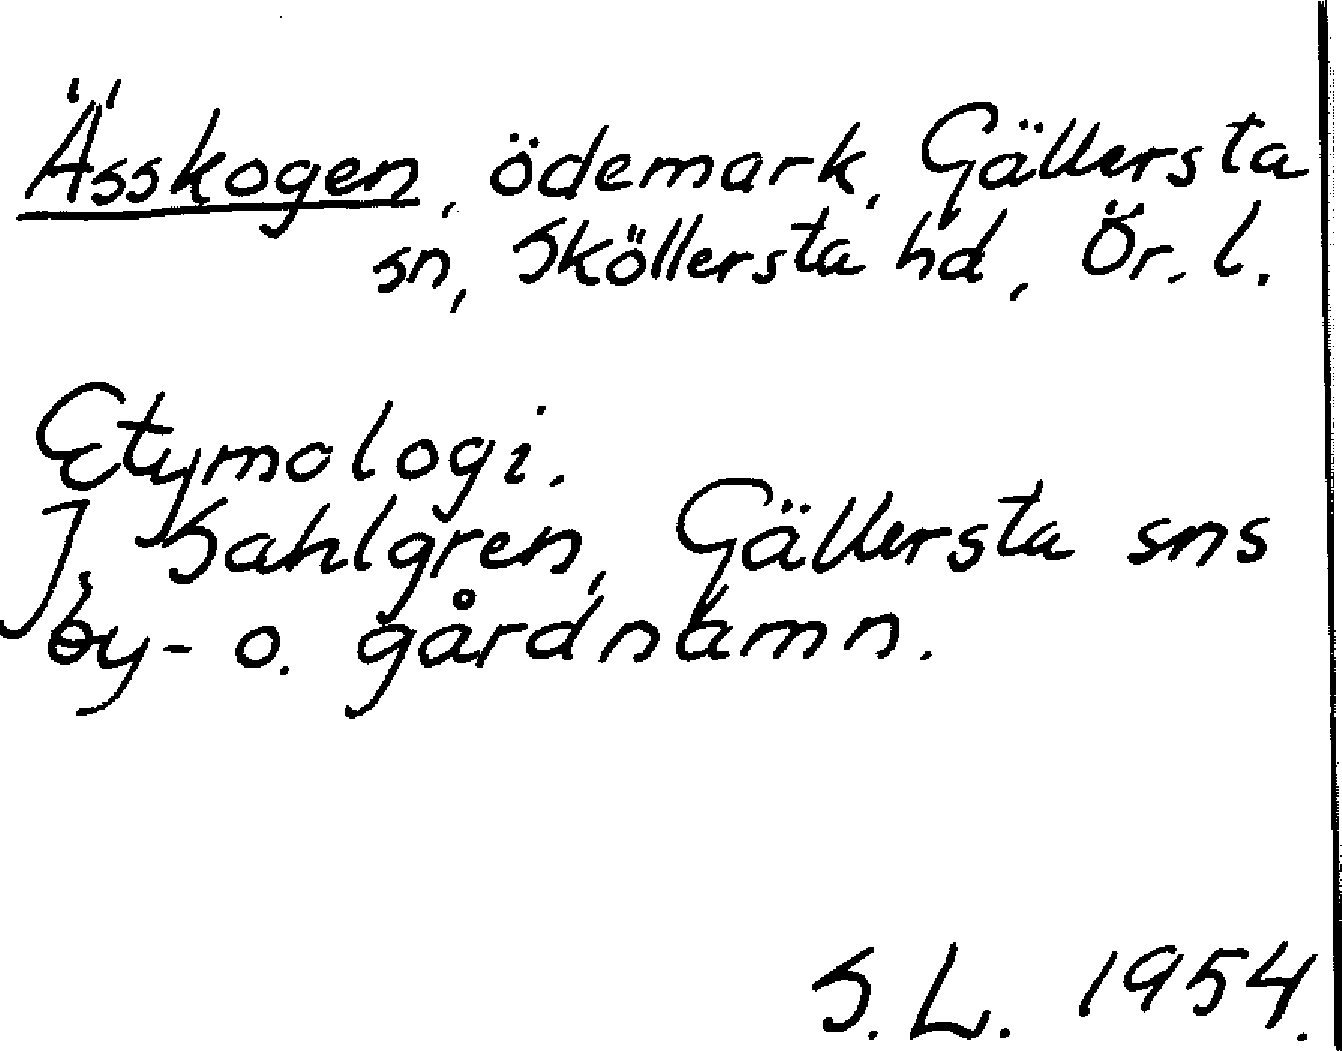 Ässkogen, ödemark, Gällersta
sn, Sköllersta hd, Ör. l.
Etymologi.
J. Sahlgren, Gällersta sns
by- o. gårdnamn.
S. L. 1954.